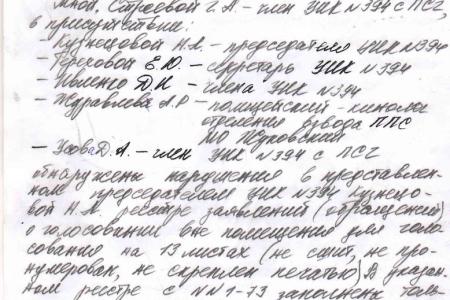 Мной, Строевой Г.А. - член УИК №394 с ПСГ,
в присутствии:
- Кузнецовой Н.А. - председателя УИК №394
- Тереховой Е.Ю. - секретарь УИК №394
- Ивленко Д.И. - члена УИК №394
- Журавлева А.Р - полицейский - кинолог
отделения взвода ППС
МО Жуковский
- Усова Д.А. - член УИК №394 с ПСГ
обнаружены нарушения в представлен-
ном председателем УИК №394 Кузнецо-
вой Н.А. реестре заявлений (обращений)
о голосовании вне помещения для голо-
сования на 13 листах (не сшит, не про-
нумерован, не скреплен печатью). В указан-
ном реестре с NN 1-73 заполнены толь-